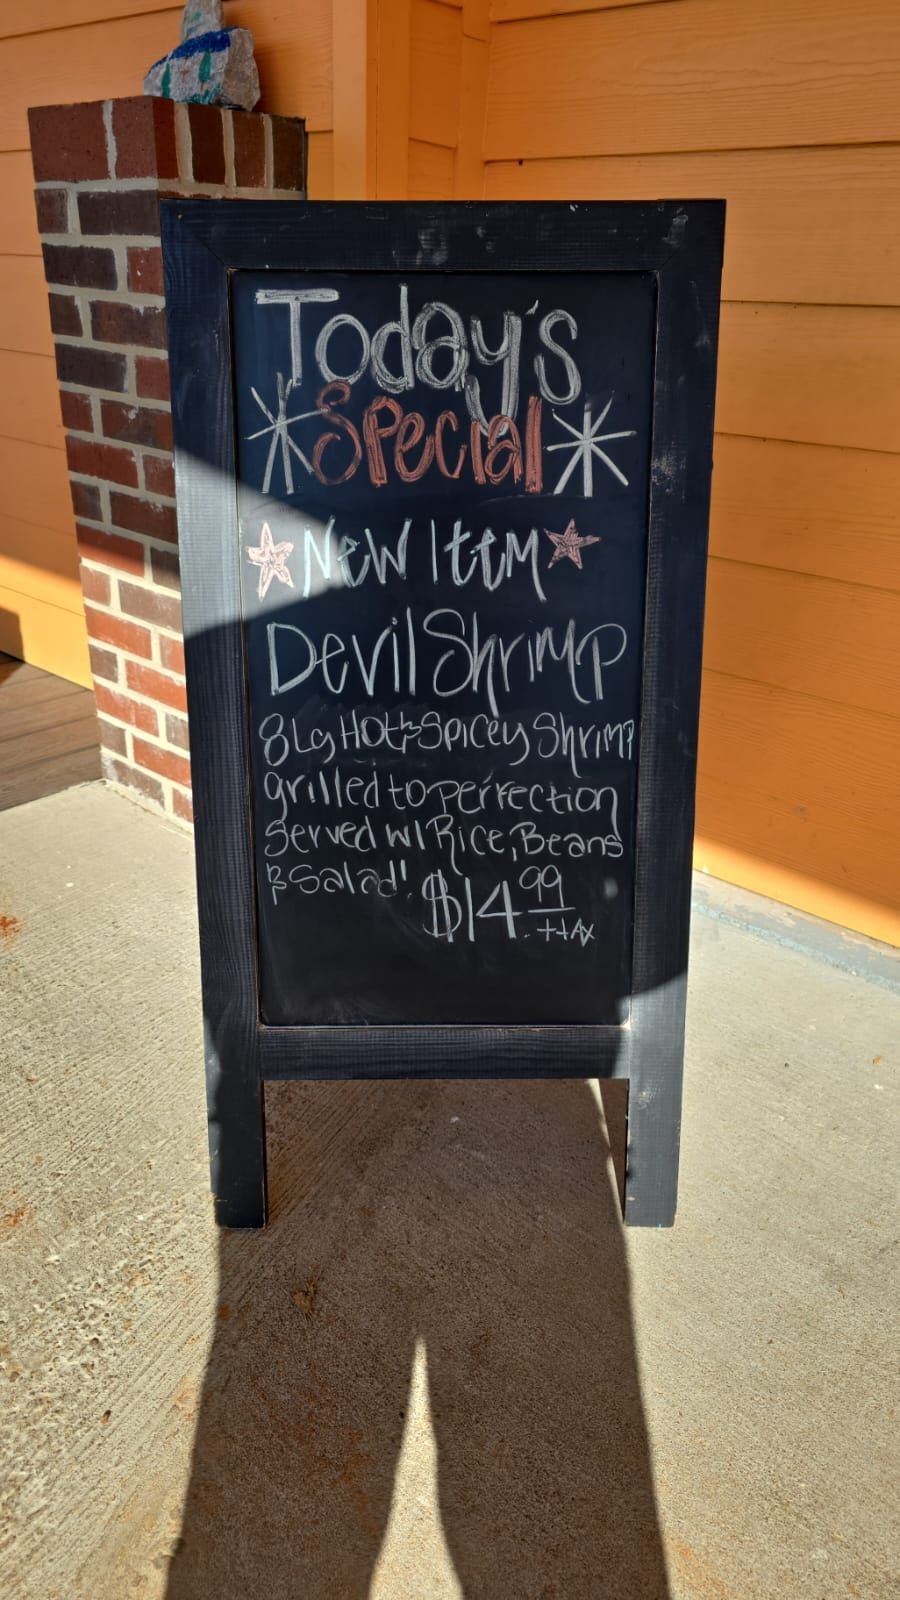 Today's
Special
New Item
Devil Shrimp
8 Lg Hot & Spicey Shrimp
grilled to perfection
Served w/ Rice, Beans
& Salad! $14.99
+tax